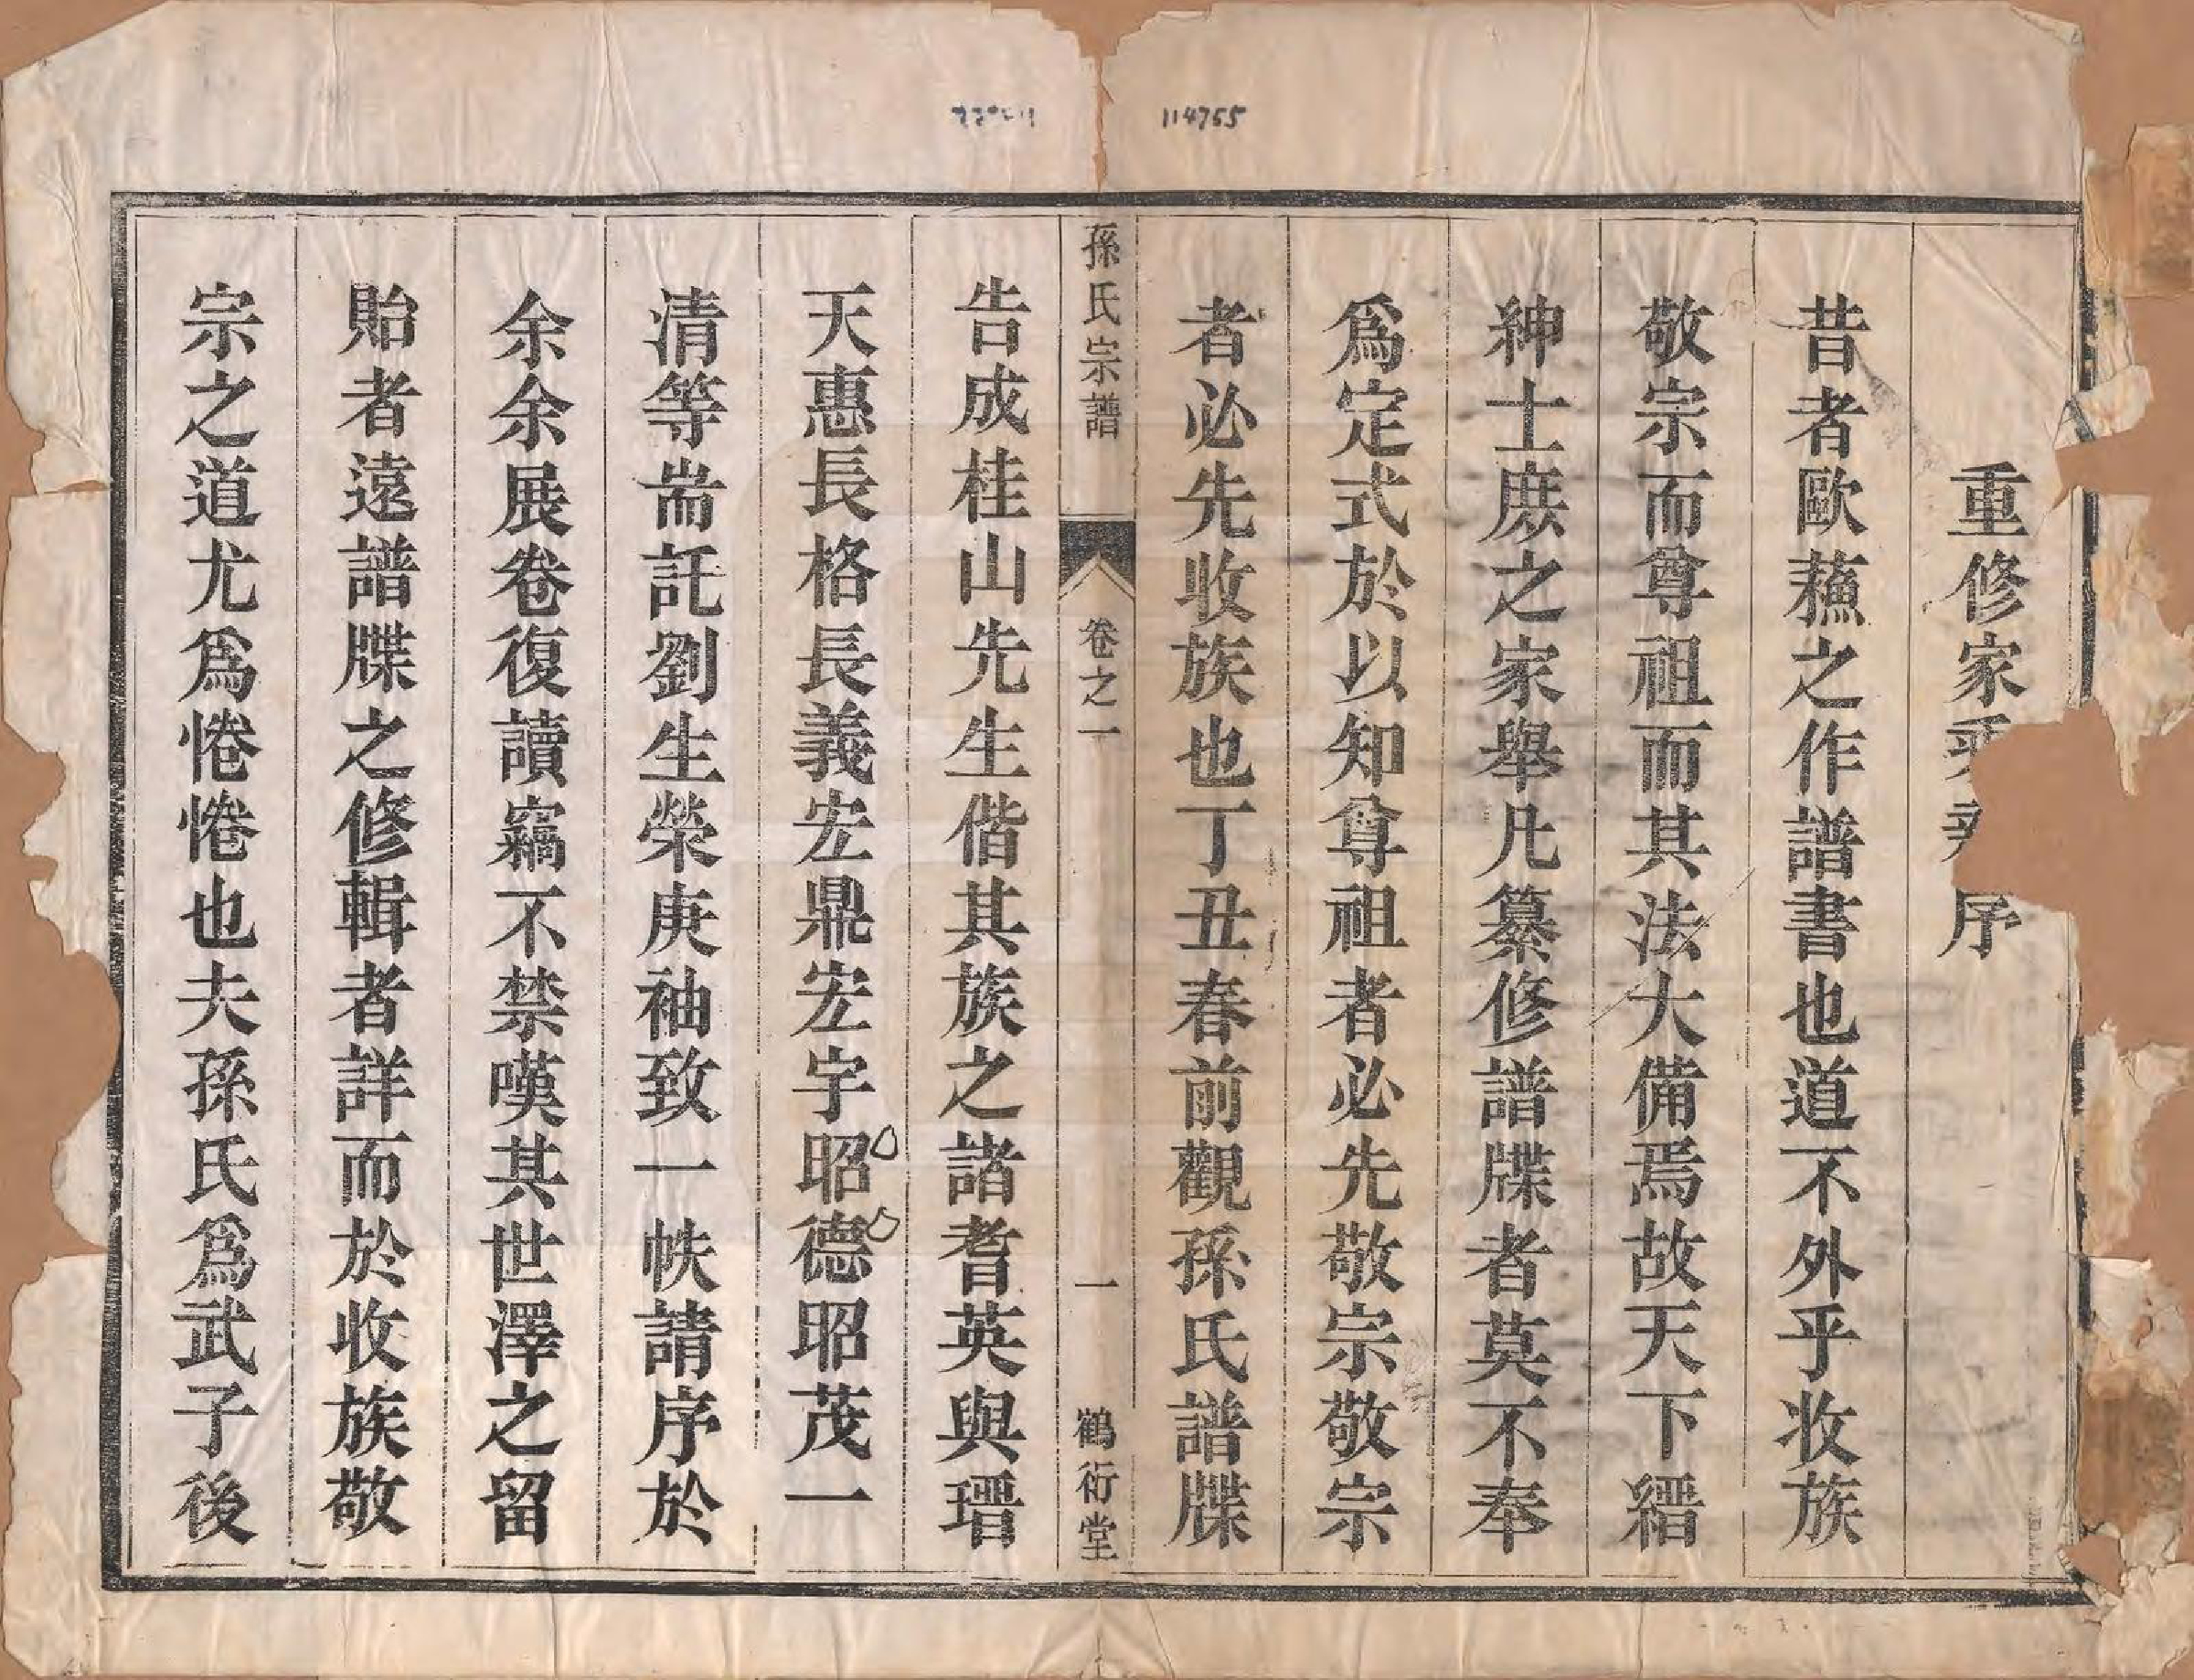 114765
重修家乘序
昔者歐蘓之作譜書也道不外乎收族
敬宗而尊祖而其法大備焉故天下縉
紳士庶之家舉凡纂修譜牒者莫不奉
爲定式於以知尊祖者必先敬宗敬宗
者必先收族也丁丑春前觀孫氏譜牒
孫氏宗譜
卷之一
一
鶴衍堂
告成桂山先生偕其族之諸耆英與瑨
天惠長格長義宏鼎宏宇昭德昭茂一
清等耑託劉生榮庚袖致一帙請序於
余余展卷復讀竊不禁嘆其世澤之留
貽者遠譜牒之修輯者詳而於收族敬
宗之道尤爲惓惓也夫孫氏爲武子後